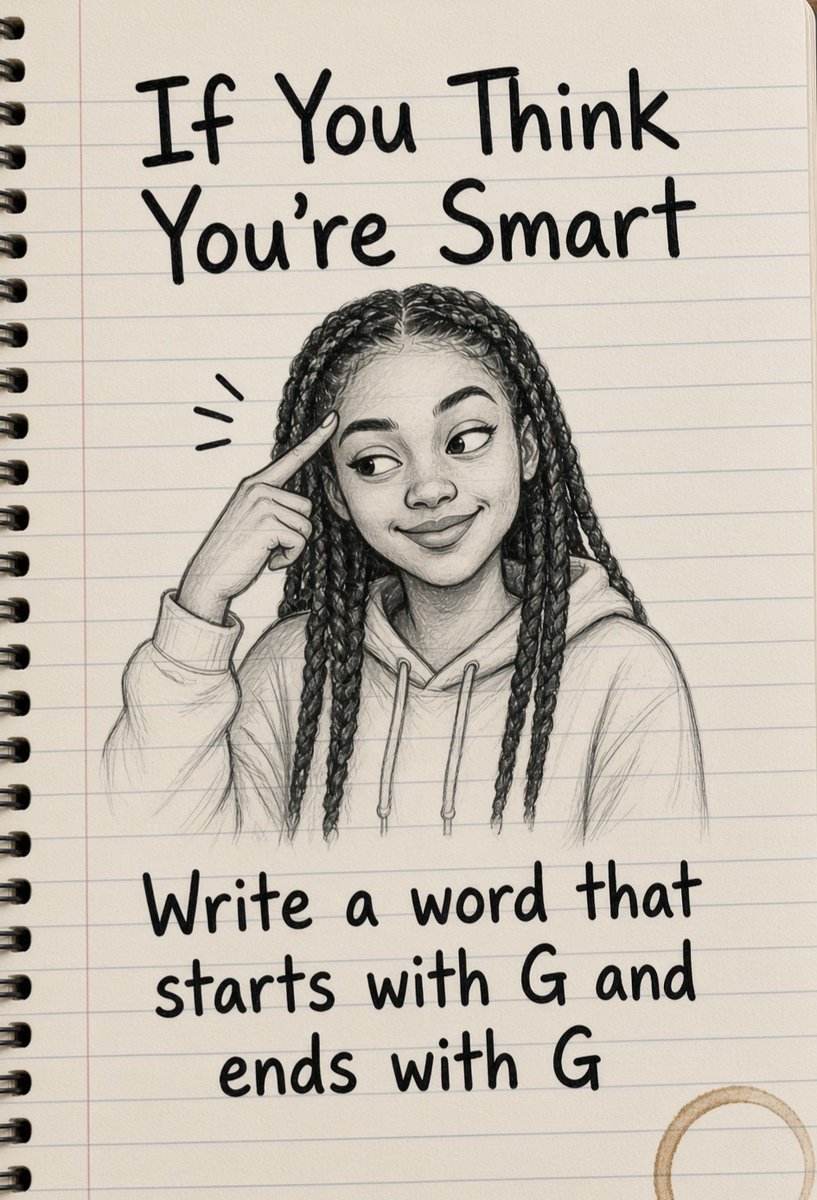 If You Think
You're Smart
Write a word that
starts with G and
ends with G